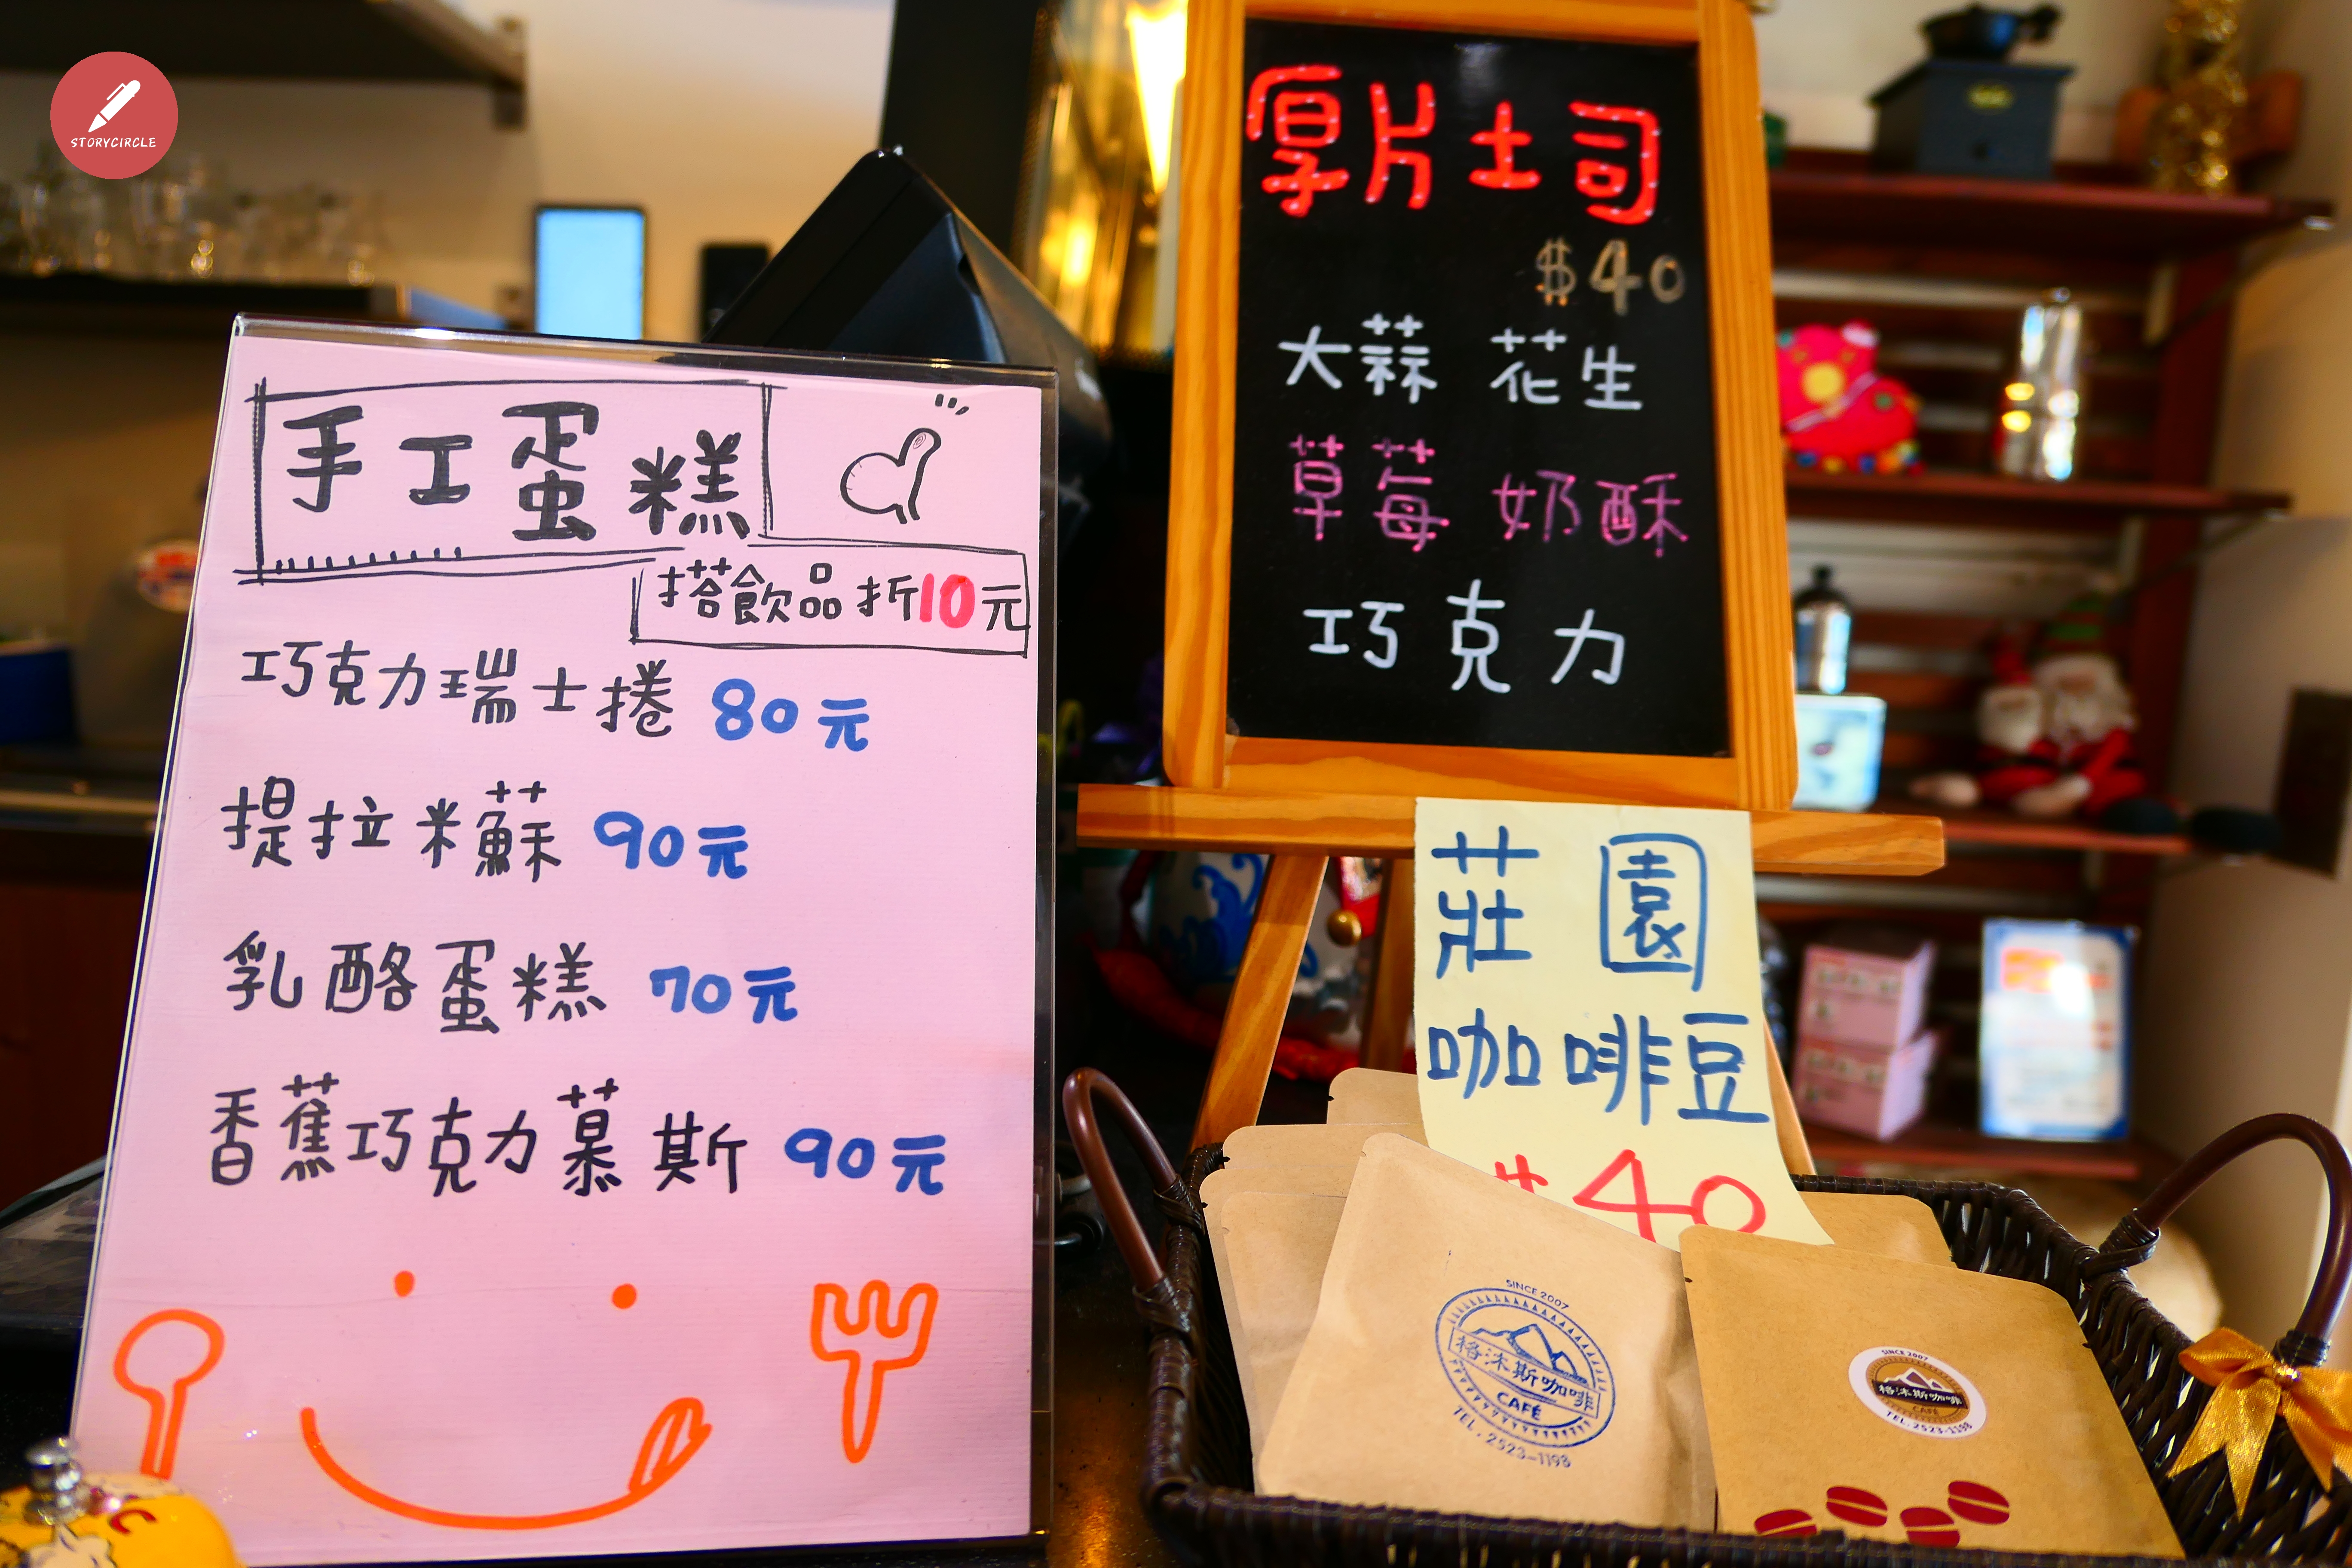 STORYCIRCLE
手工蛋糕
搭飲品折10元
巧克力瑞士捲 80元
提拉米蘇 90元
乳酪蛋糕 70元
香蕉巧克力慕斯 90元
厚片土司
$40
大蒜 花生
草莓 奶酥
巧克力
莊園
咖啡豆
$40
SINCE 2007
格沐斯咖啡
CAFÉ
TEL. 2523-1198
SINCE 2007
格沐斯咖啡
CAFÉ
TEL. 2523-1198